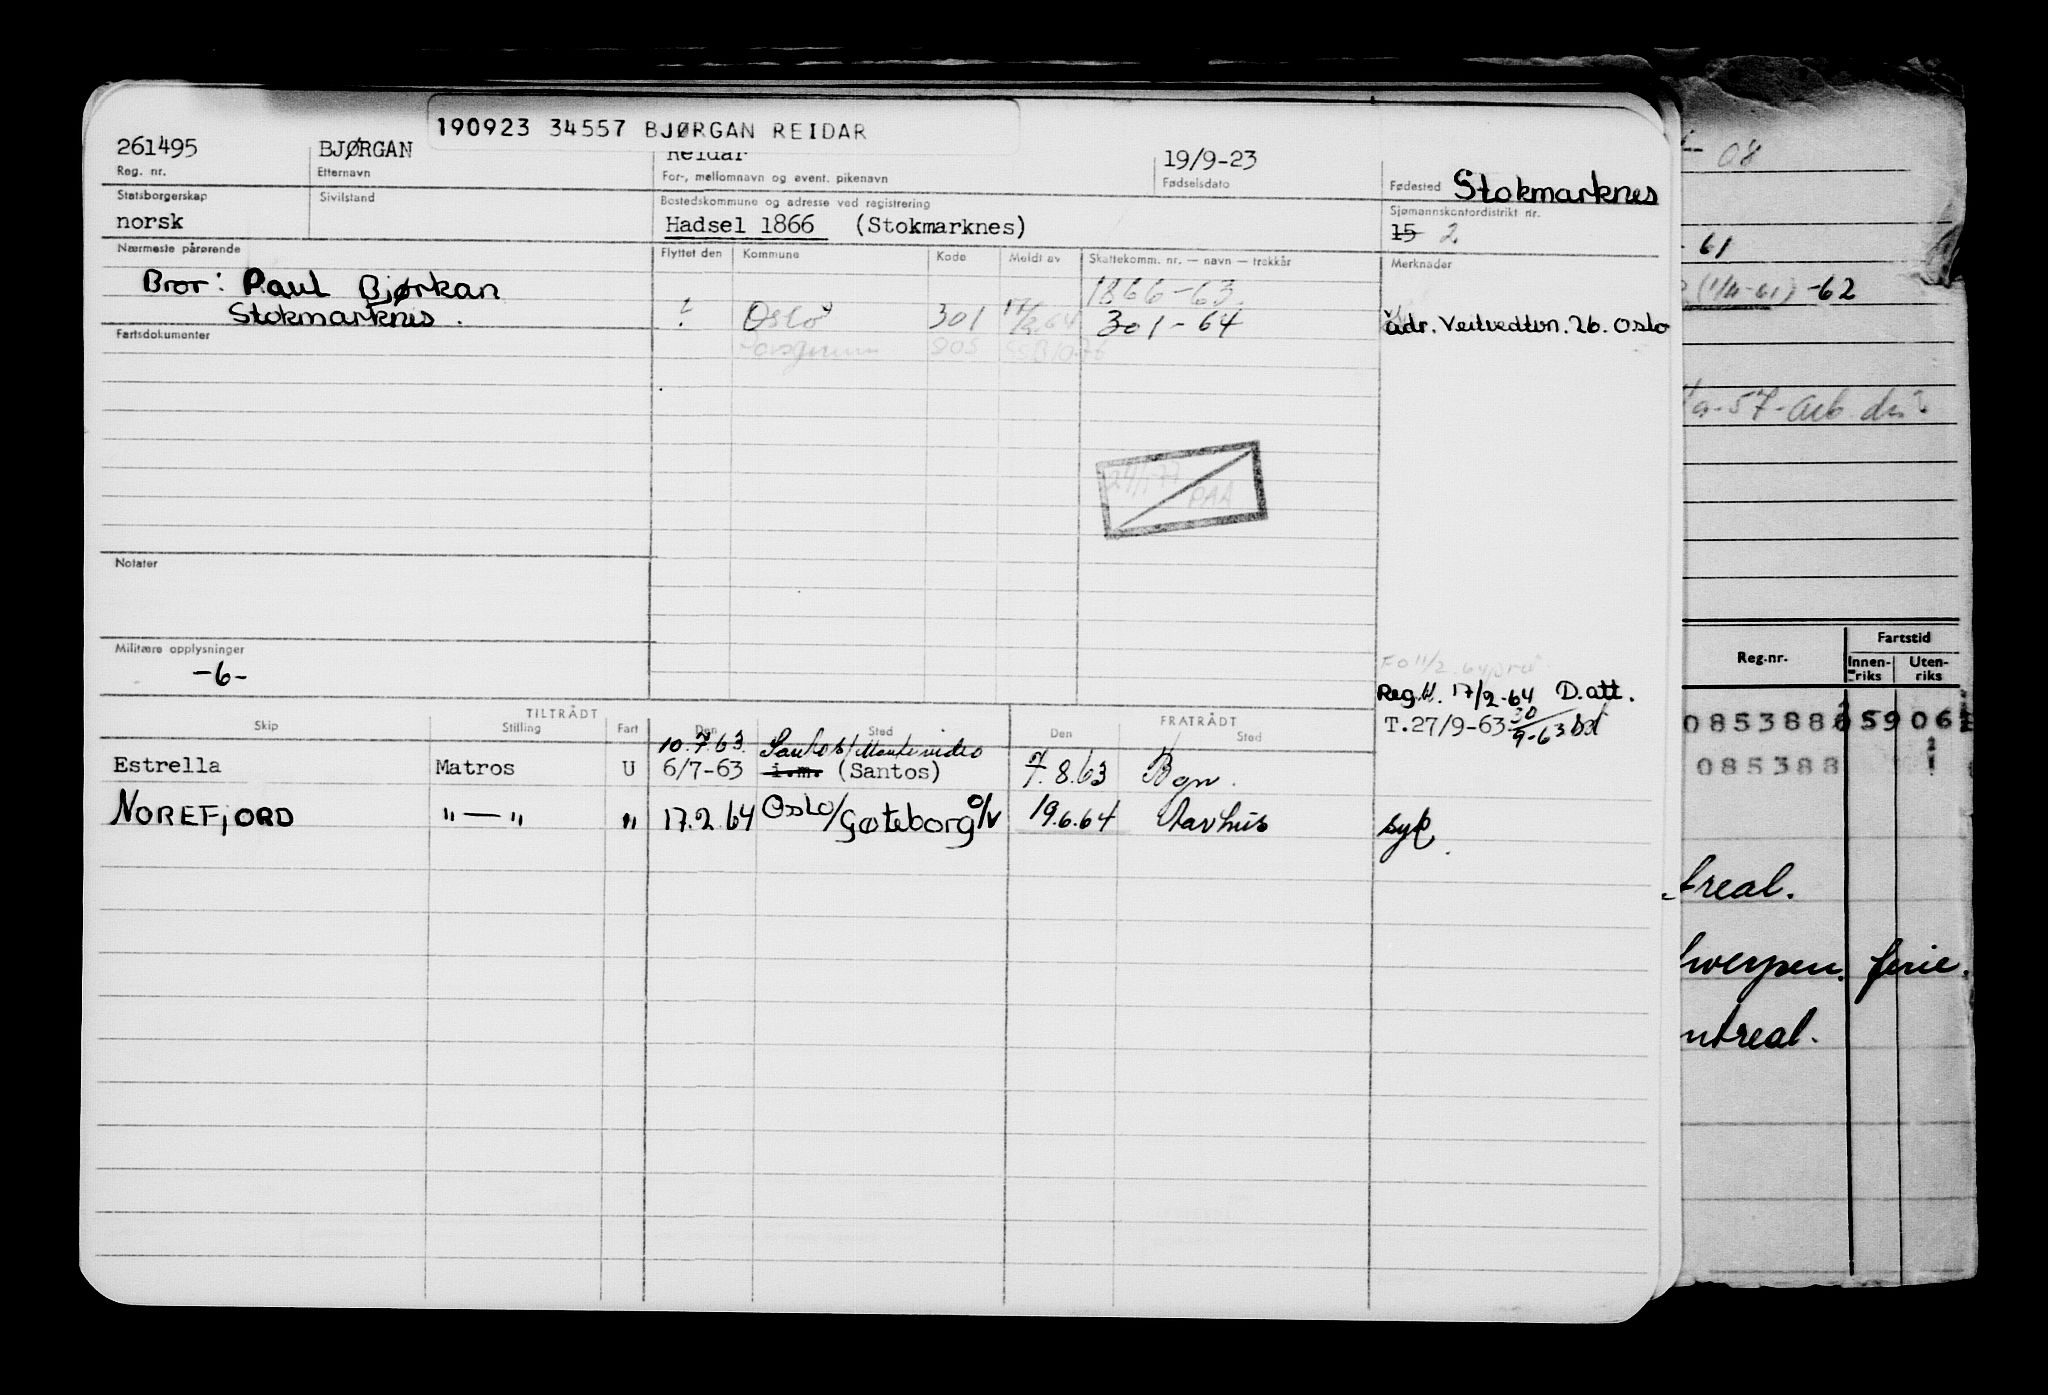 190923 34557 BJØRGAN REIDAR
261495 BJØRGAN Reidar 19/9-23 Stokmarknes
Reg. nr. Etternavn For-, mellomnavn og event. pikenavn Fødselsdato Fødested
Statsborgerskap Sivilstand Bostedskommune og adresse ved registrering Sjømannskontordistrikt nr.
norsk Hadsel 1866 (Stokmarknes) 15 2
Nærmeste pårørende Flyttet den Kommune Kode Meldt av Skattekomm. nr. — navn — trekkår Merknader
Bror: Paul Bjørkan 1866-63.
Stokmarknes. ? Oslo 301 17/2.64 301-64 adr. Veitvedtvn. 26. Oslo
Fartsdokumenter
Porsgrunn 805
24/1-77
PAA
Notater
Militære opplysninger
-6-
Reg.W. 17/2-64 D.att.
T.27/9-63 30/9-63
TILTRÅDT FRATRÅDT
Skip Stilling Fart Den Sted Den Sted
10.7.63. Santos/Montevideo
Estrella Matros U 6/7-63 i.m. (Santos) 7.8.63 Bgn.
NOREFJORD " — " " 17.2.64 Oslo/Gøteborg o/v 19.6.64 Aarhus syk.
08
61
(1/4-61) -62
-57-arb.
Reg.nr. Fartstid
Innen-riks Uten-riks
0853888 059 06
085388
treal.
werpen. ferie.
ntreal.